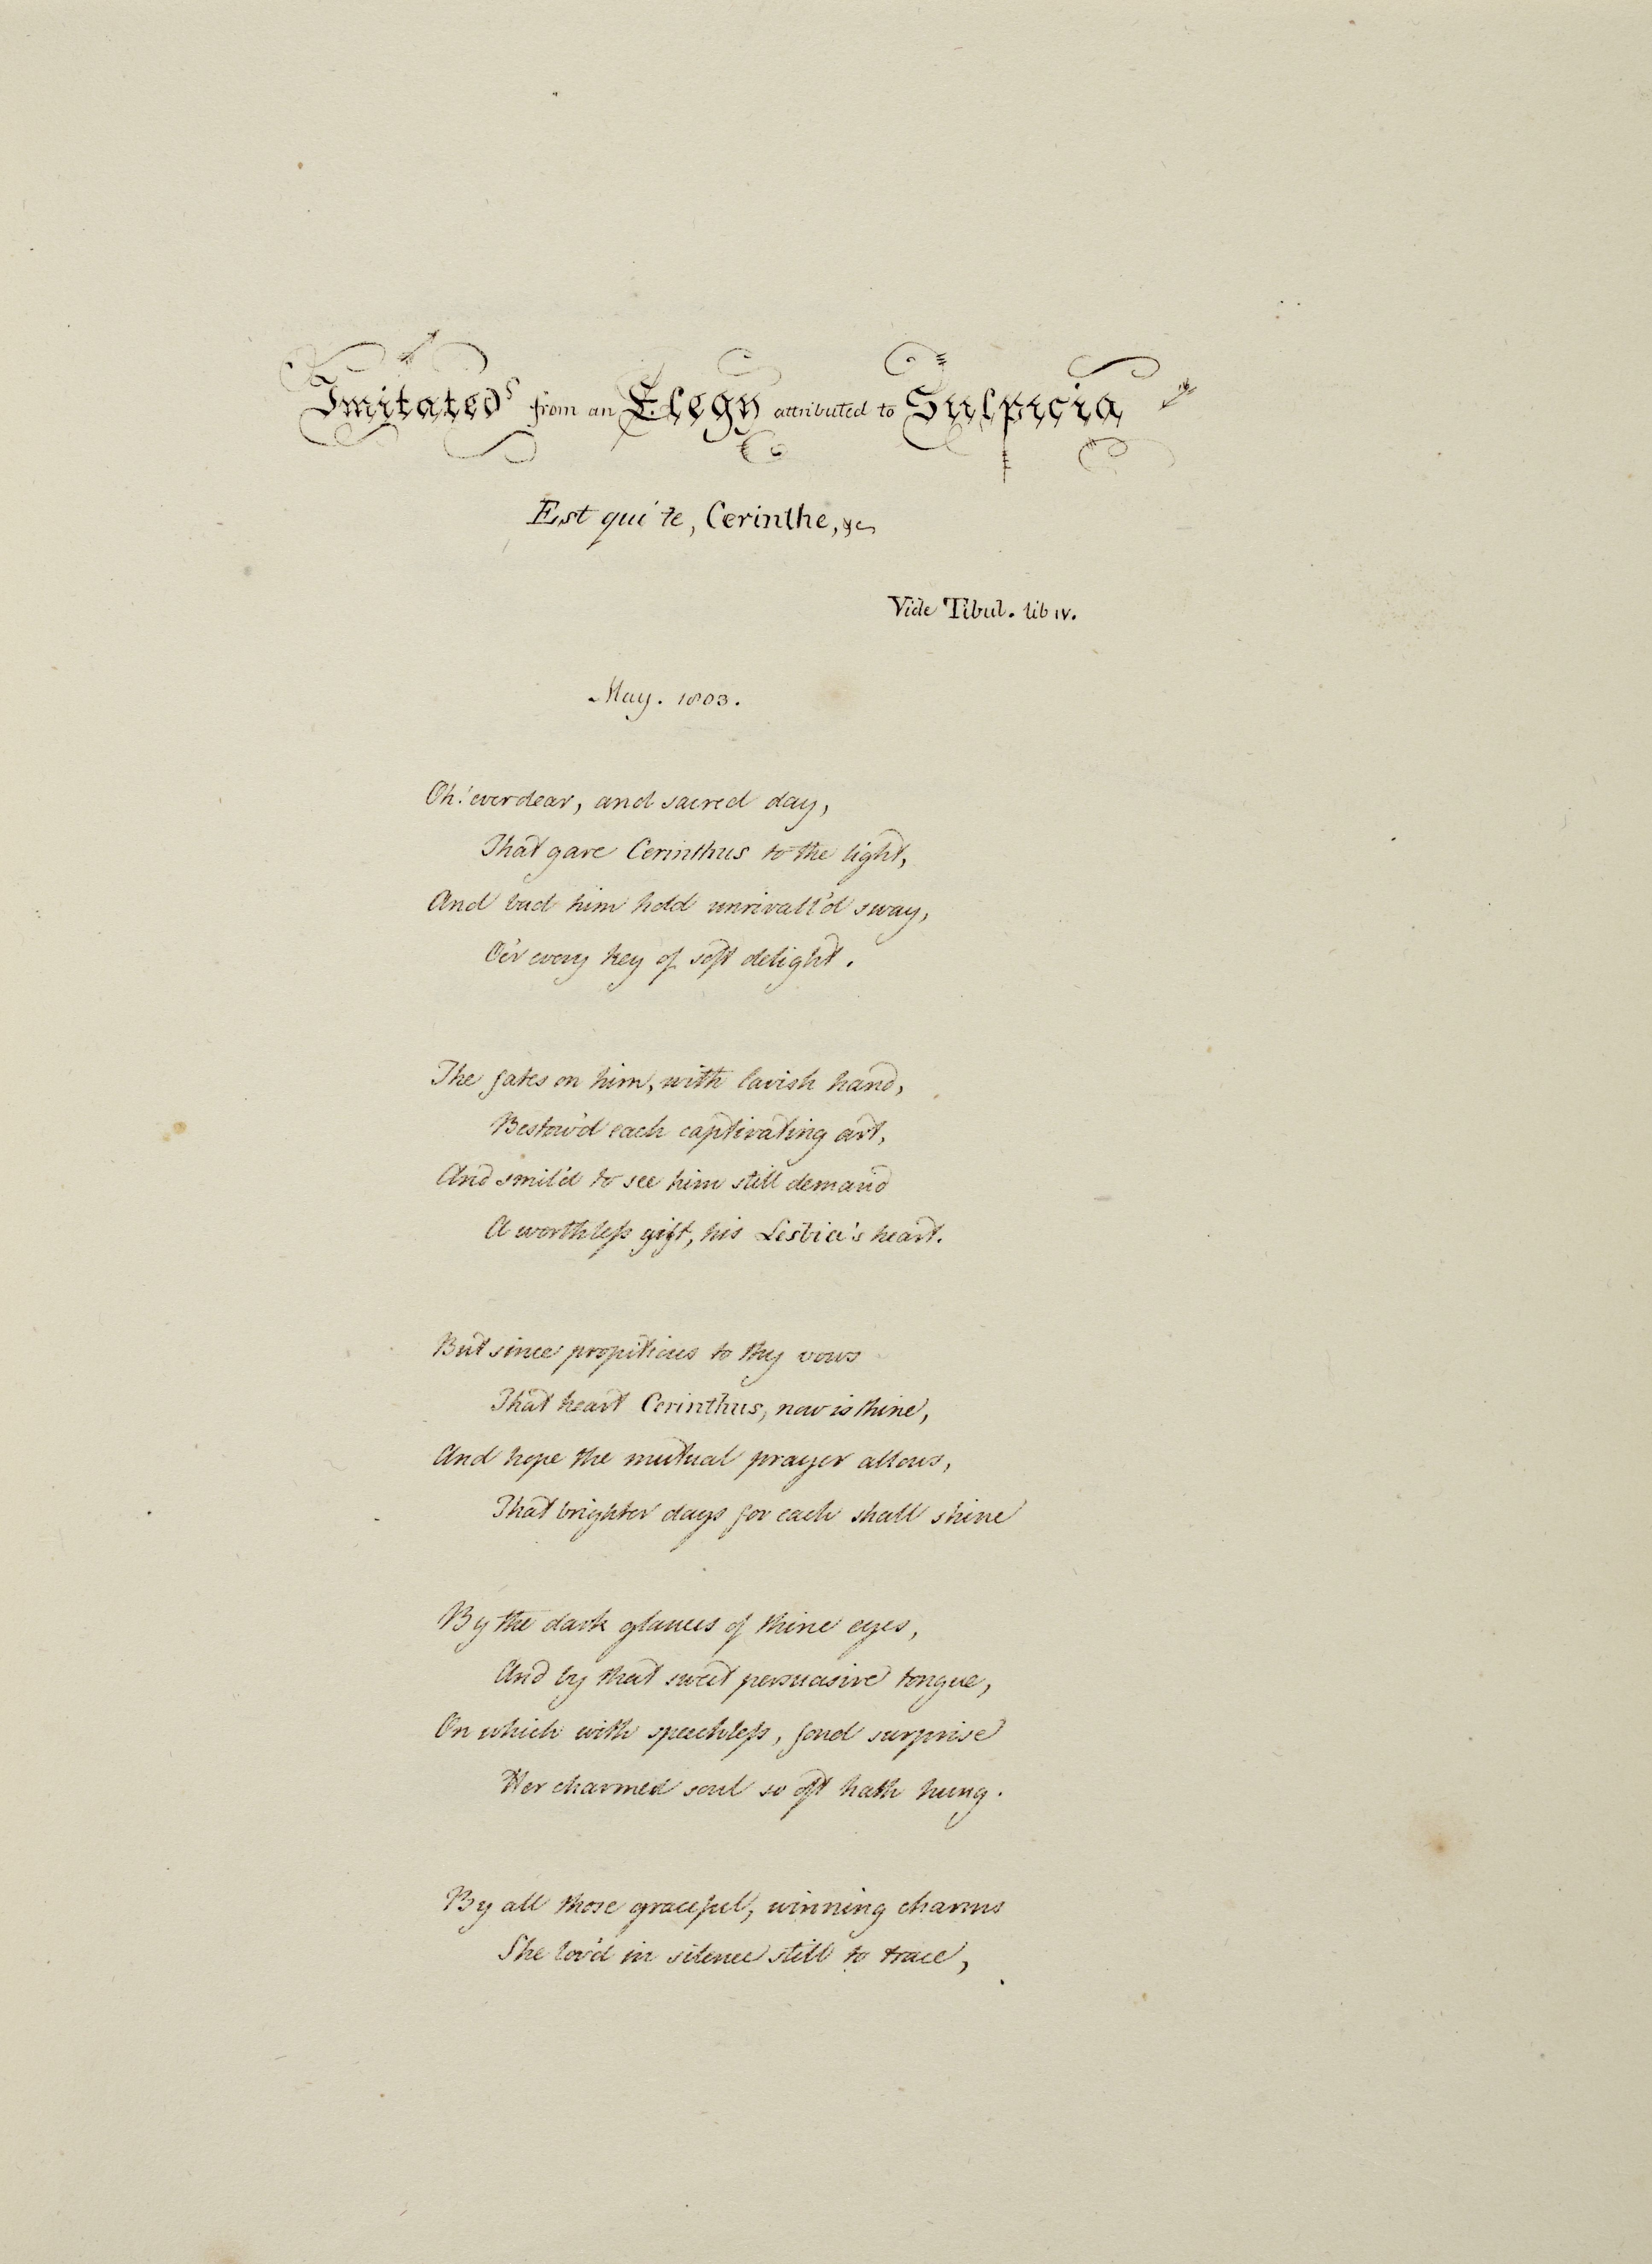 Imitated from an Elegy attributed to Sulpicia
Est qui te, Cerinthe, &c
Vide Tibul. lib IV.
May. 1803.
Oh! ever dear, and sacred day,
That gave Cerinthus to the light,
And bad him hold unrivall'd sway,
O'er every key of soft delight.
The fates on him, with lavish hand,
Bestow'd each captivating art,
And smil'd to see him still demand
A worthless gift, his Lesbia's heart.
But since propitious to thy vows
That heart Cerinthus, now is thine,
And hope the mutual prayer allows,
That brighter days for each shall shine
By the dark glances of thine eyes,
And by that sweet persuasive tongue,
On which with speechless, fond surprise
Her charmed soul so oft hath hung.
By all those graceful, winning charms
She lov'd in silence still to trace,